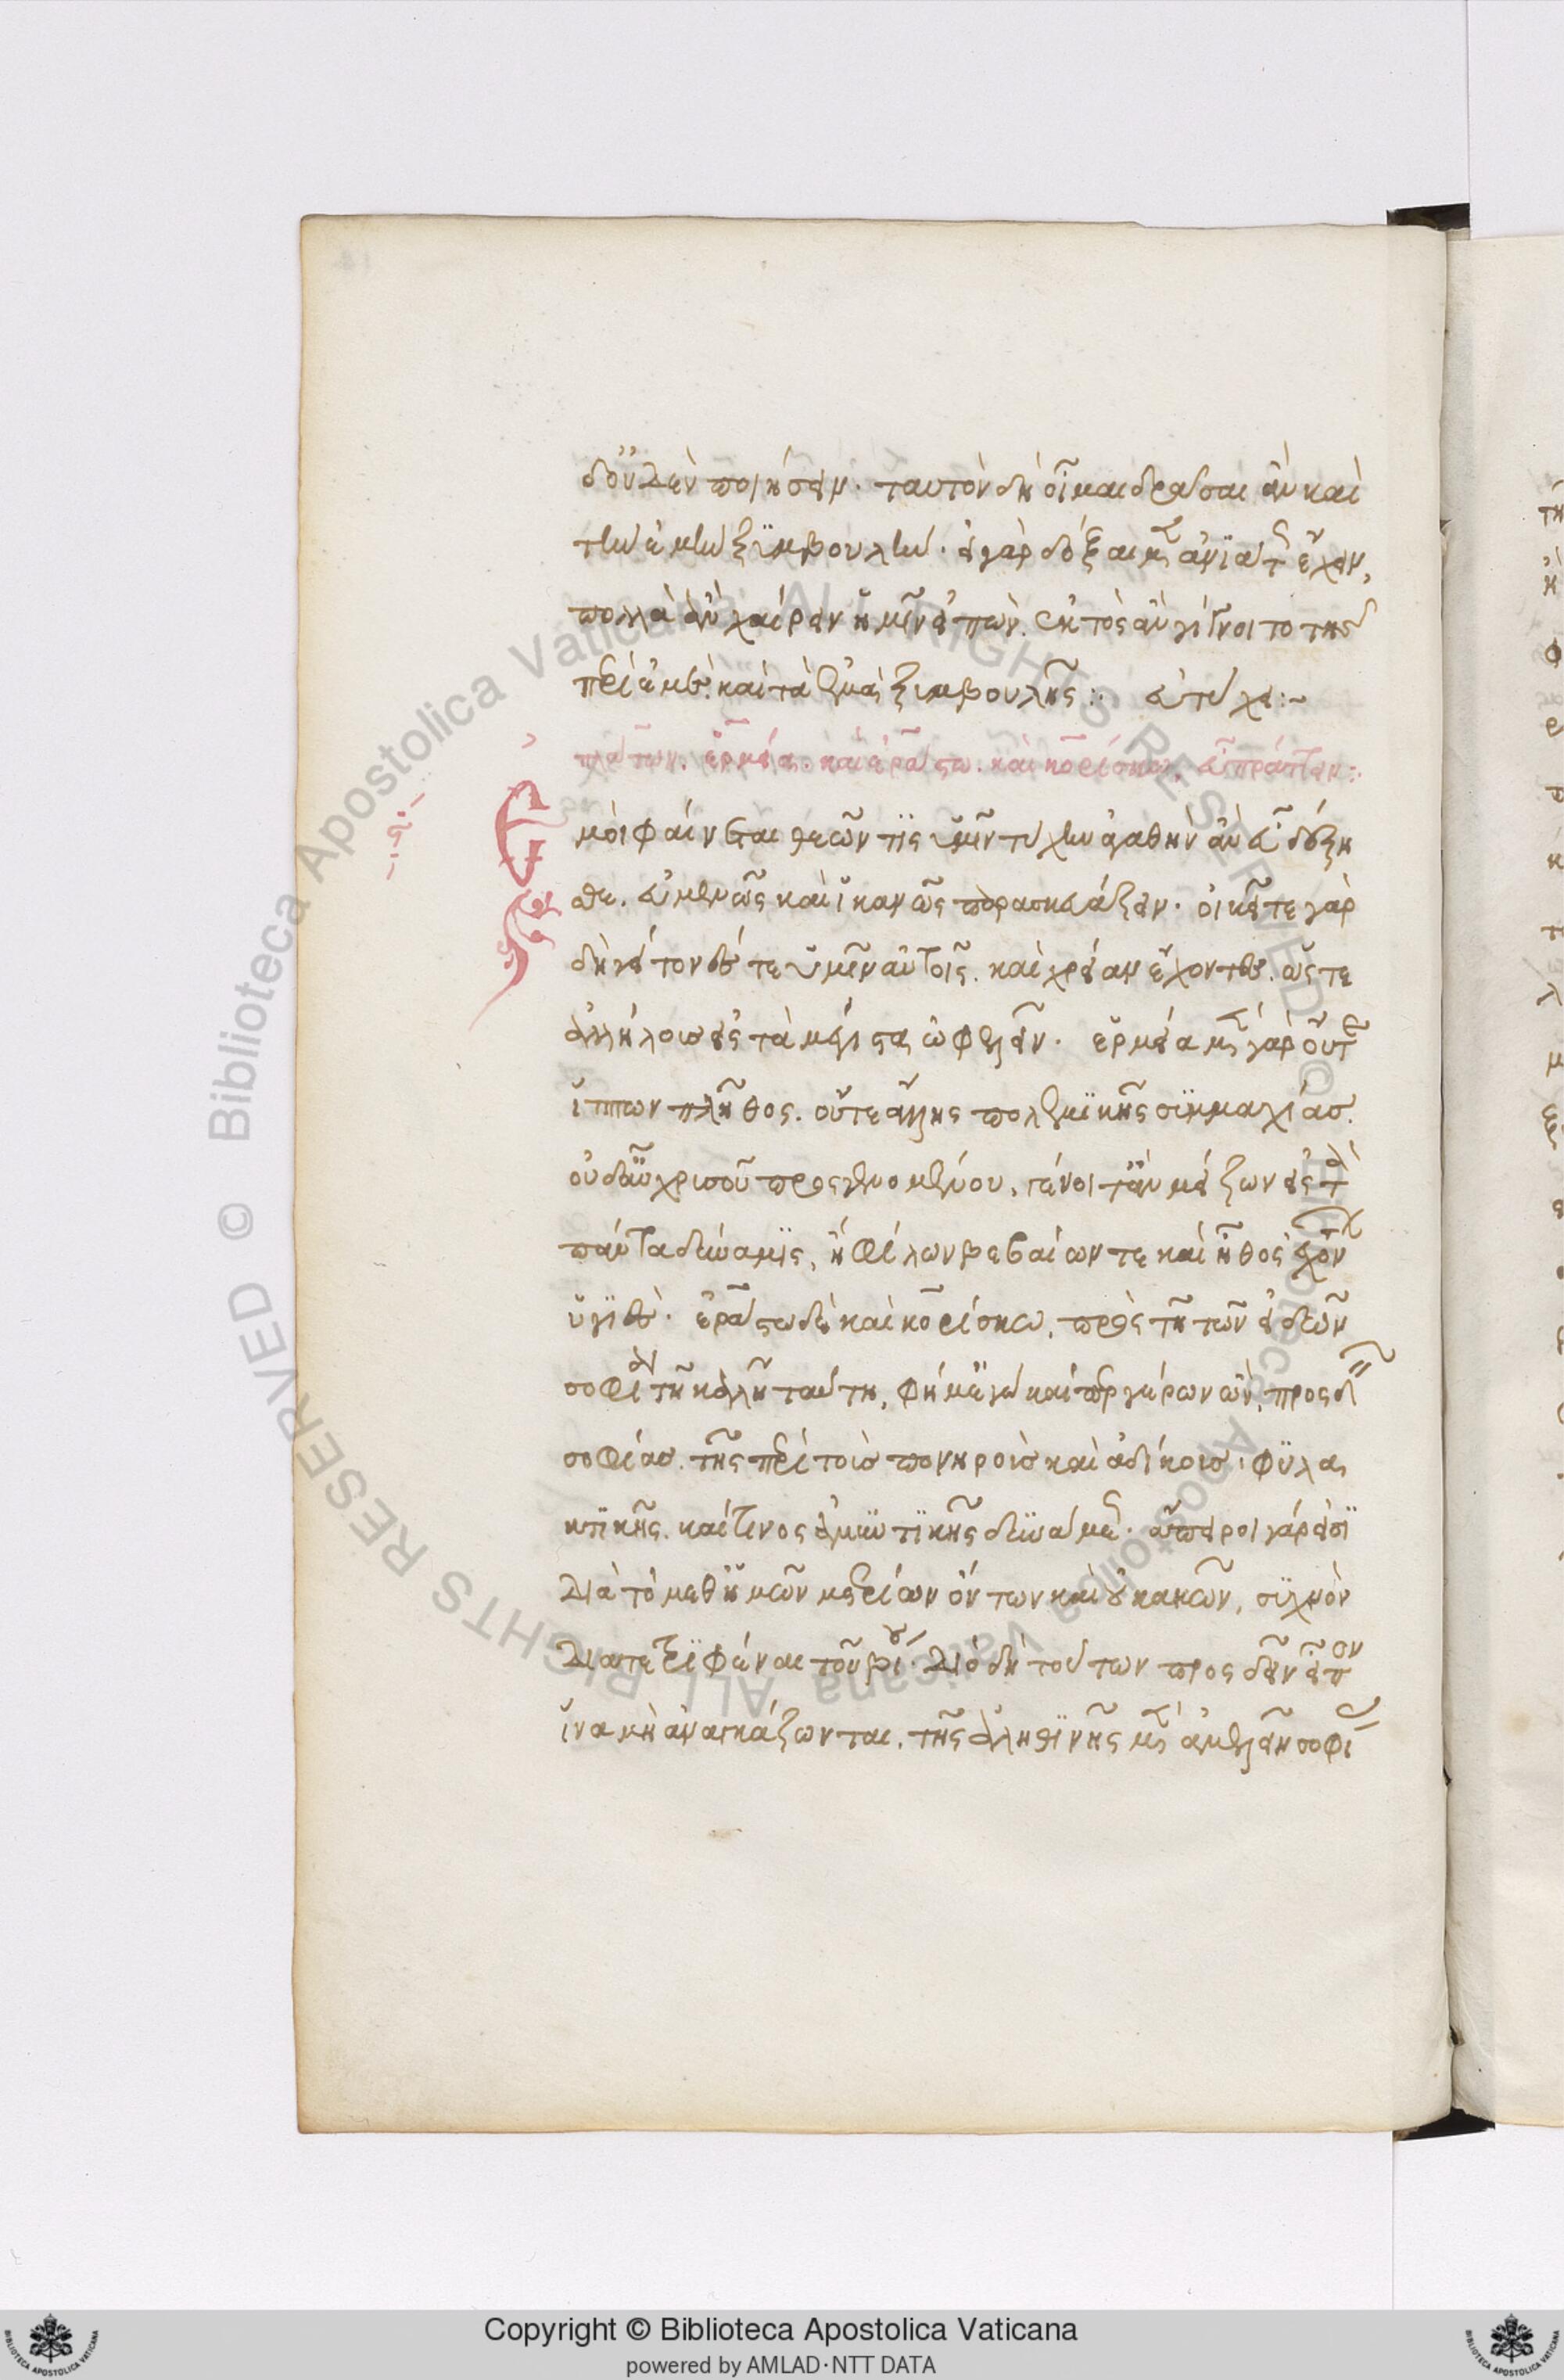 δ' οὐδὲν ποιήσειν. ταυτὸν δὴ οἶμαι δράσαι ἂν καὶ
τὴν ἐμὴν ξυμβουλήν. εἰ γὰρ δόξαιμεν ἀνιάτως ἔχειν,
πολλὰ ἂν χαίρειν ἡμῖν εἰπὼν. ἐκτὸς ἂν γίγνοιτο τῆς
περὶ ἐμὲ καὶ τὰ ἐμὰ ξυμβουλῆς :· εὐτύχει :~
πλάτων. ἑρμείᾳ. καὶ ἐράστω. καὶ κορίσκω. εὖ πράττειν :·
-ς-
Ἐμοὶ φαίνεται θεῶν τις ὑμῖν τύχην ἀγαθὴν ἂν εὖ δέξη
σθε. εὐμενῶς καὶ ἱκανῶς παρασκευάζειν. οἰκεῖτε γὰρ
δὴ γείτονές τε ὑμῖν αὐτοῖς. καὶ χρείαν ἔχοντες. ὥστε
ἀλλήλοις εἰς τὰ μέγιστα ὠφελεῖν. ἑρμείᾳ μὲν γὰρ οὔτε
ἵππων πλῆθος. οὔτε ἄλλης πολεμικῆς συμμαχίας.
οὐδ' αὖ χρυσοῦ προσγενομένου, γένοιτ' ἂν μείζων εἰς τὰ
πάντα δύναμις, ἢ φίλων βεβαίων τε καὶ ἦθος ἐχόντων
ὑγιὲς. ἐράστω δὲ καὶ κορίσκω, πρὸς τῇ τῶν εἰδῶν
σοφίᾳ τῇ καλῇ ταύτη, φήμ' ἐγὼ καίπερ γέρων ὢν, προσδεῖν
σοφίας. τῆς περὶ τοὺς πονηροὺς καὶ ἀδίκους φυλα
κτικῆς. καί τινος ἀμυντικῆς δυνάμεως. ἄπειροι γάρ εἰσι
διὰ τὸ μεθ' ἡμῶν μετρίων ὄντων καὶ οὐ κακῶν, συχνὸν
διατετριφέναι τοῦ βίου. διὸ δὴ τούτων προσδεῖν εἶπον
ἵνα μὴ ἀναγκάζωνται. τῆς ἀληθινῆς μὲν ἀμελεῖν σοφίας
Copyright © Biblioteca Apostolica Vaticana
powered by AMLAD·NTT DATA